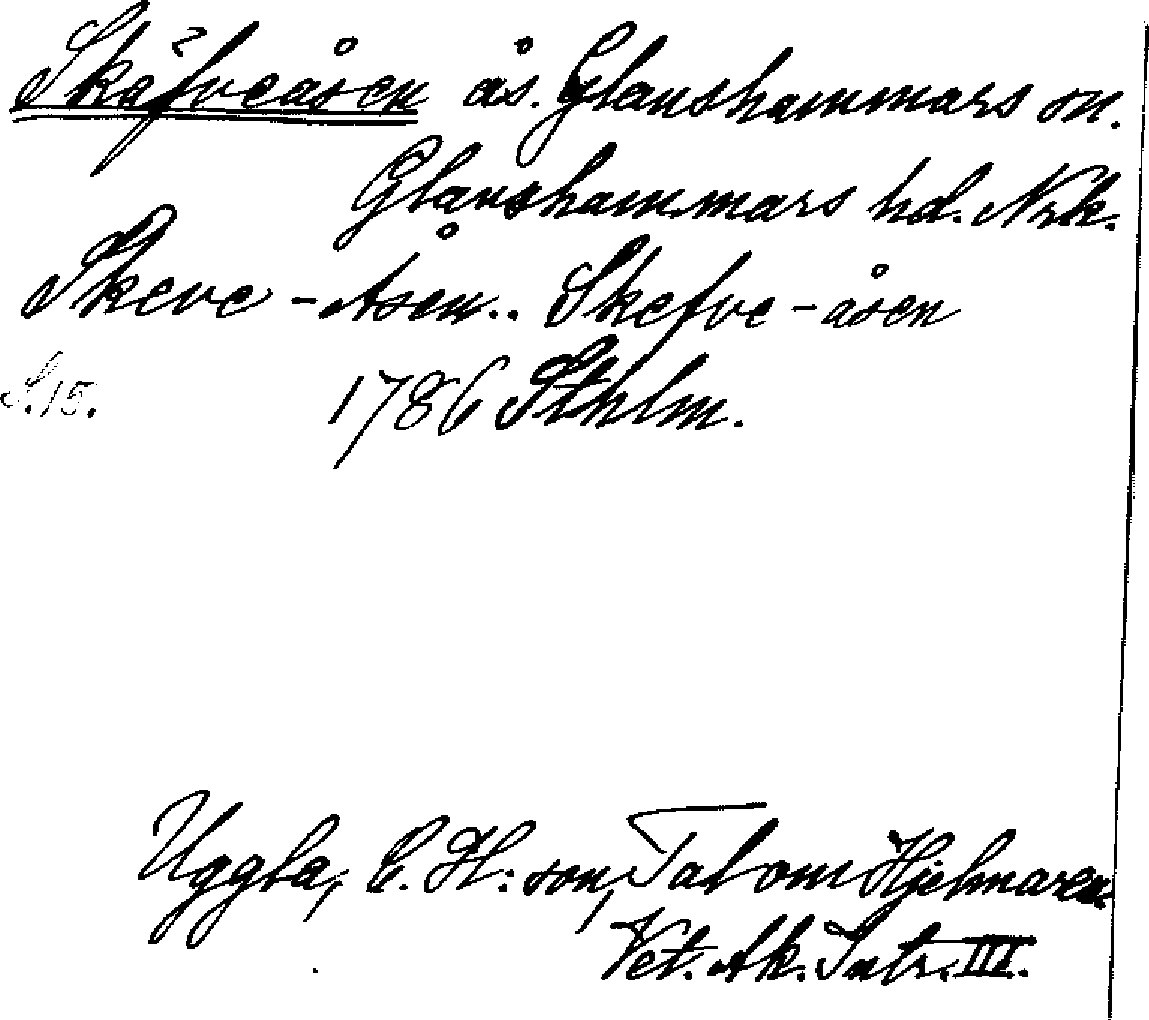 Skäfveåsen ås. Glanshammars sn.
Glanshammars hd. Nrk.
Skeve-Åsen.. Skefve-åsen
S.15. 1786 Sthlm.
Uggla, C. H:son, Tal om Hjelmaren.
Vet. Ak. Intr. III.